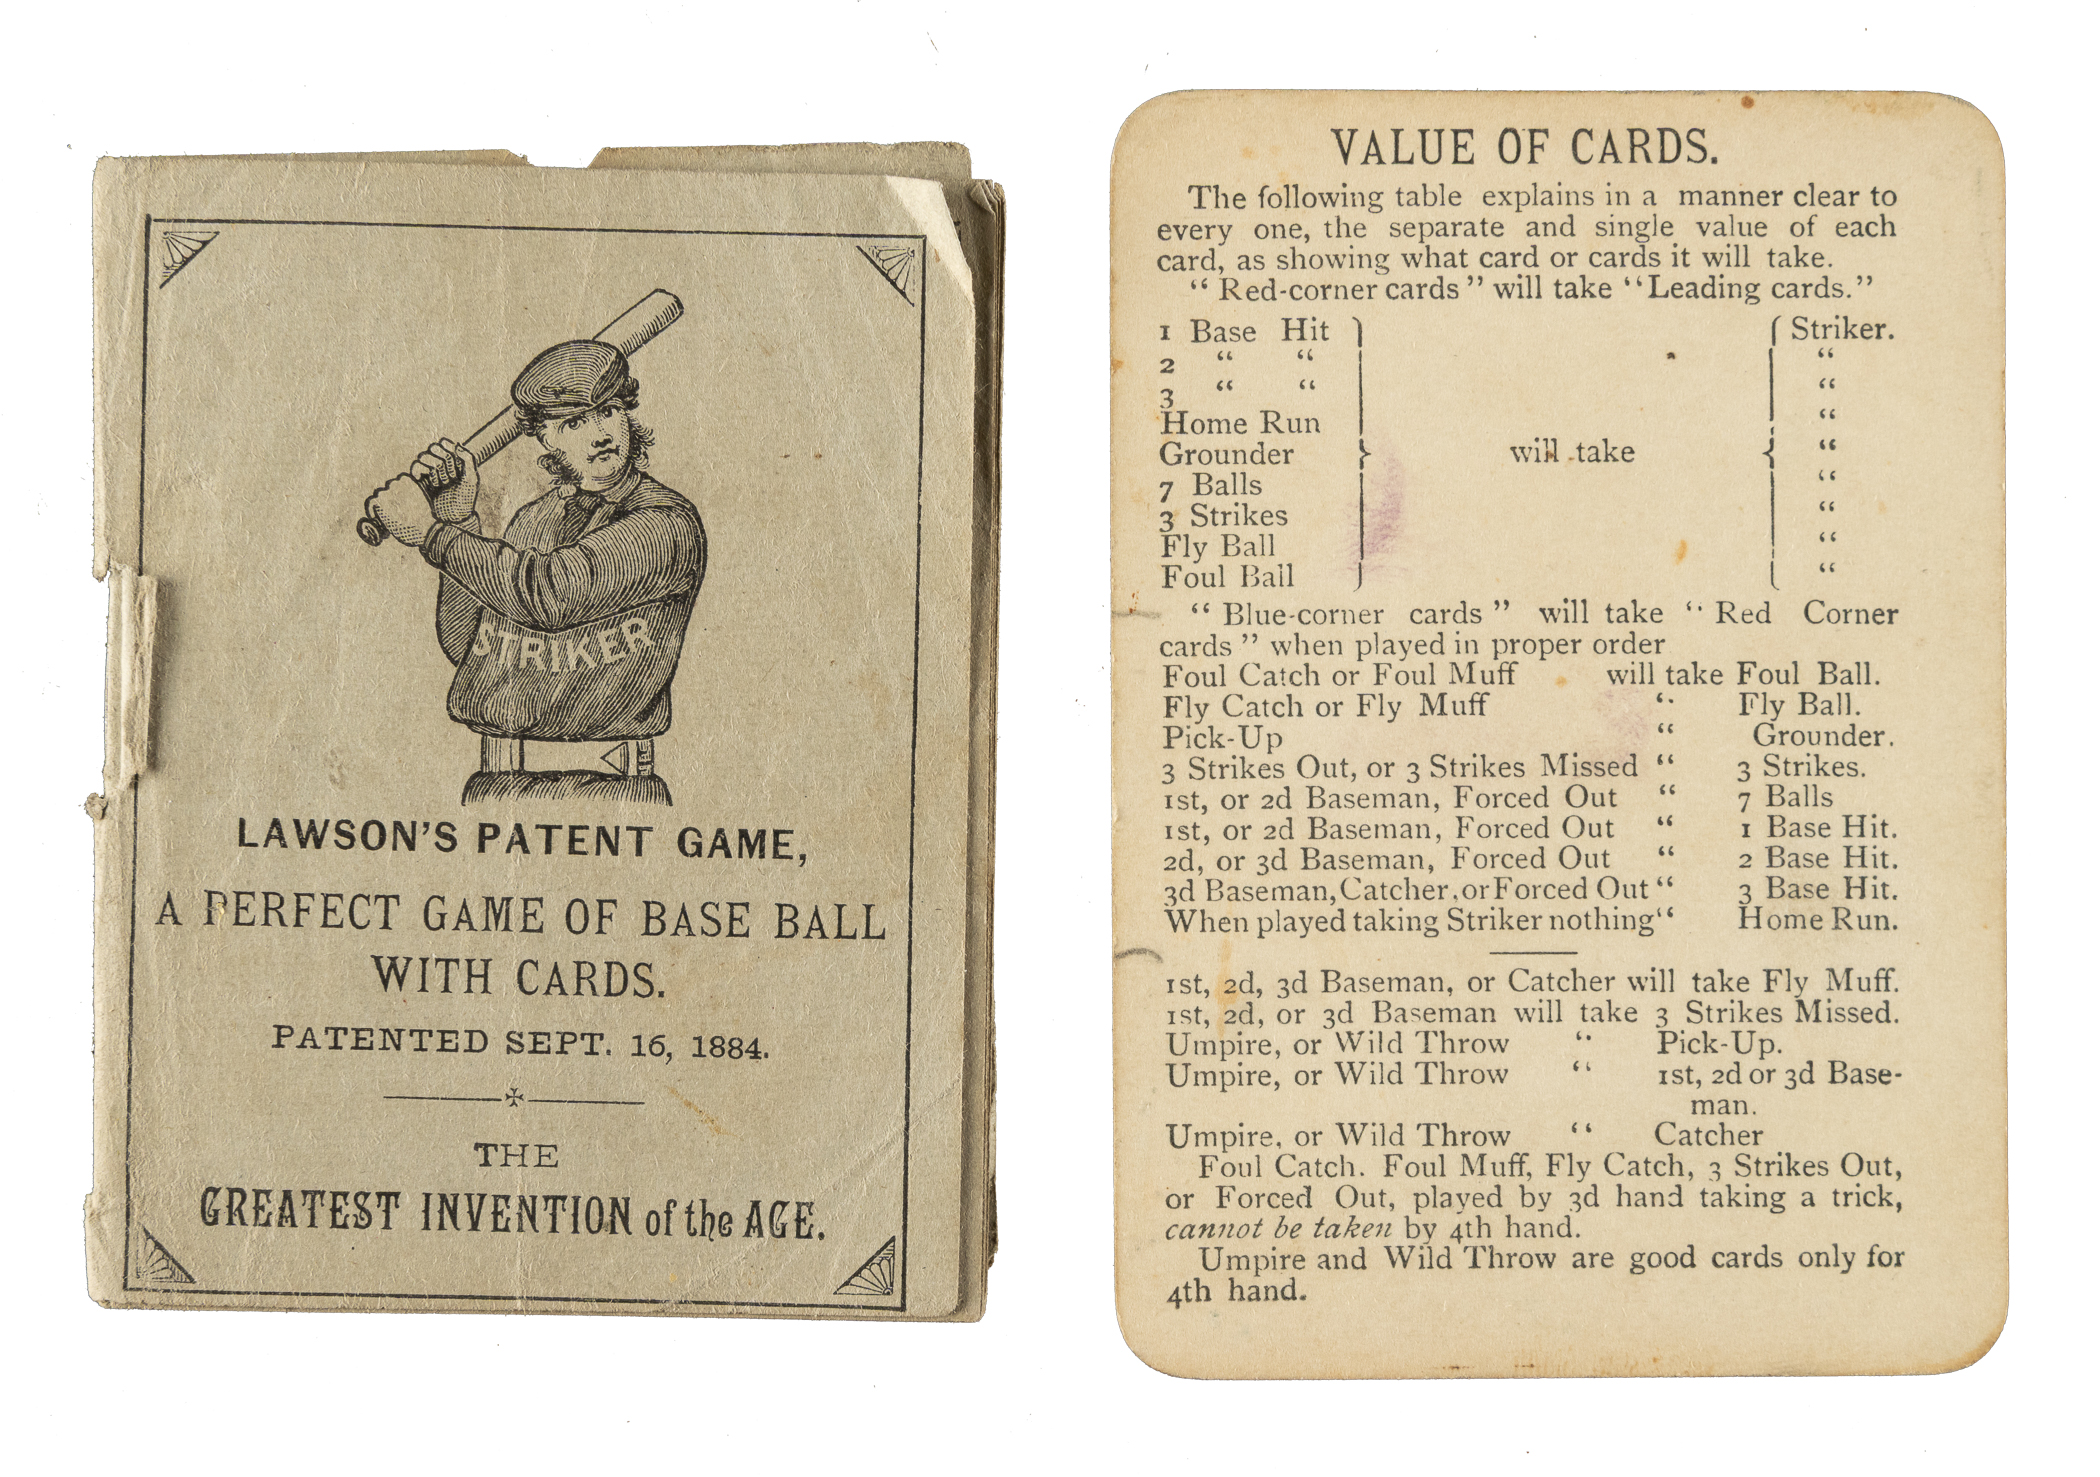 STRIKER
LAWSON'S PATENT GAME,
A PERFECT GAME OF BASE BALL
WITH CARDS.
PATENTED SEPT. 16, 1884.
THE
GREATEST INVENTION of the AGE.
VALUE OF CARDS.
The following table explains in a manner clear to
every one, the separate and single value of each
card, as showing what card or cards it will take.
“ Red-corner cards ” will take “Leading cards.”
1 Base Hit } { Striker.
2 “ “ “
3 “ “ “
Home Run “
Grounder will take “
7 Balls “
3 Strikes “
Fly Ball “
Foul Ball “
“ Blue-corner cards ” will take “ Red Corner
cards ” when played in proper order
Foul Catch or Foul Muff will take Foul Ball.
Fly Catch or Fly Muff “ Fly Ball.
Pick-Up “ Grounder.
3 Strikes Out, or 3 Strikes Missed “ 3 Strikes.
1st, or 2d Baseman, Forced Out “ 7 Balls
1st, or 2d Baseman, Forced Out “ 1 Base Hit.
2d, or 3d Baseman, Forced Out “ 2 Base Hit.
3d Baseman, Catcher, or Forced Out “ 3 Base Hit.
When played taking Striker nothing “ Home Run.
1st, 2d, 3d Baseman, or Catcher will take Fly Muff.
1st, 2d, or 3d Baseman will take 3 Strikes Missed.
Umpire, or Wild Throw “ Pick-Up.
Umpire, or Wild Throw “ 1st, 2d or 3d Base-
man.
Umpire, or Wild Throw “ Catcher
Foul Catch. Foul Muff, Fly Catch, 3 Strikes Out,
or Forced Out, played by 3d hand taking a trick,
cannot be taken by 4th hand.
Umpire and Wild Throw are good cards only for
4th hand.